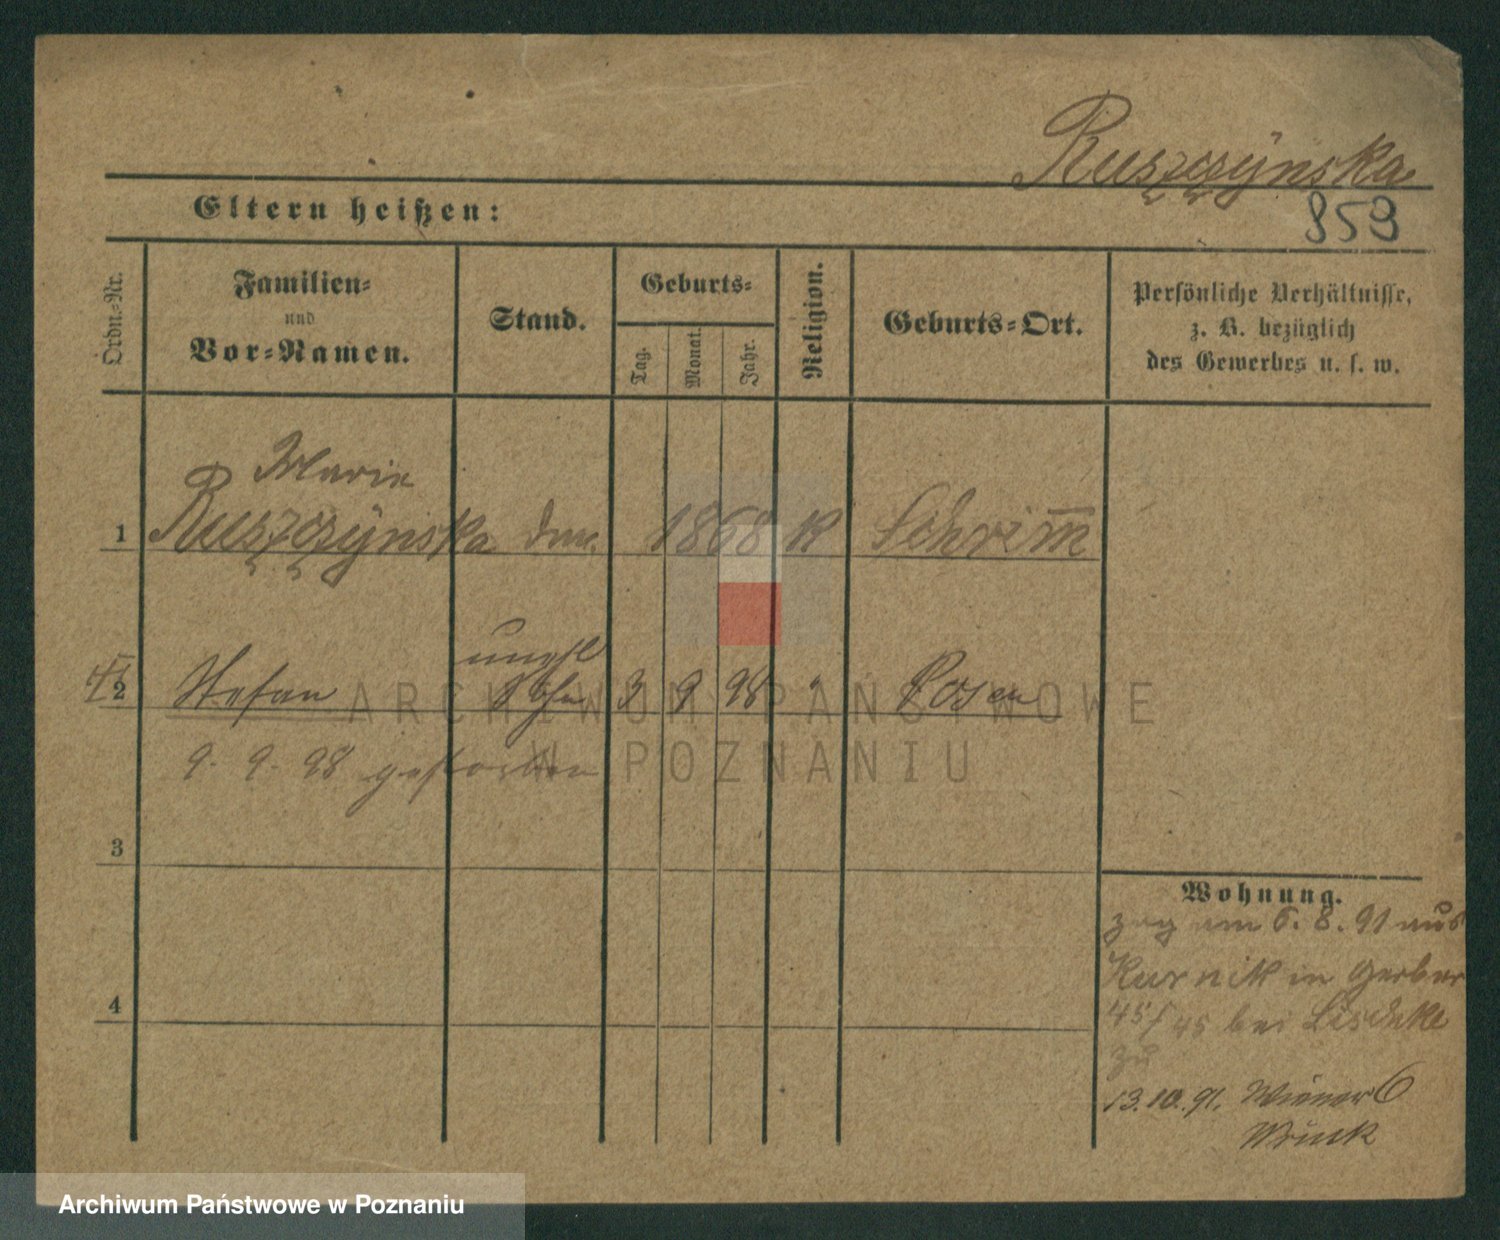 Ruszczÿnska
Eltern heißen:
853
Ordn.-Nr.
Familien-
und
Vor-Namen.
Stand.
Geburts-
Tag.
Monat.
Jahr.
Religion.
Geburts-Ort.
Persönliche Verhältnisse,
z. B. bezüglich
des Gewerbes u. s. w.
Marie
1 Ruszczÿnska 1868 K Schrim̅
unehl
2 Stefan Sohn 3 9 98 " Posen
9. 9. 98 gestorben
3
4
Wohnung.
zog am 6. 8. 91 aus
Kurnik in Gerber
45/45 bei Lischke
zu
13.10.91. Wiener 6
Wruck
ARCHIWUM PAŃSTWOWE
W POZNANIU
Archiwum Państwowe w Poznaniu